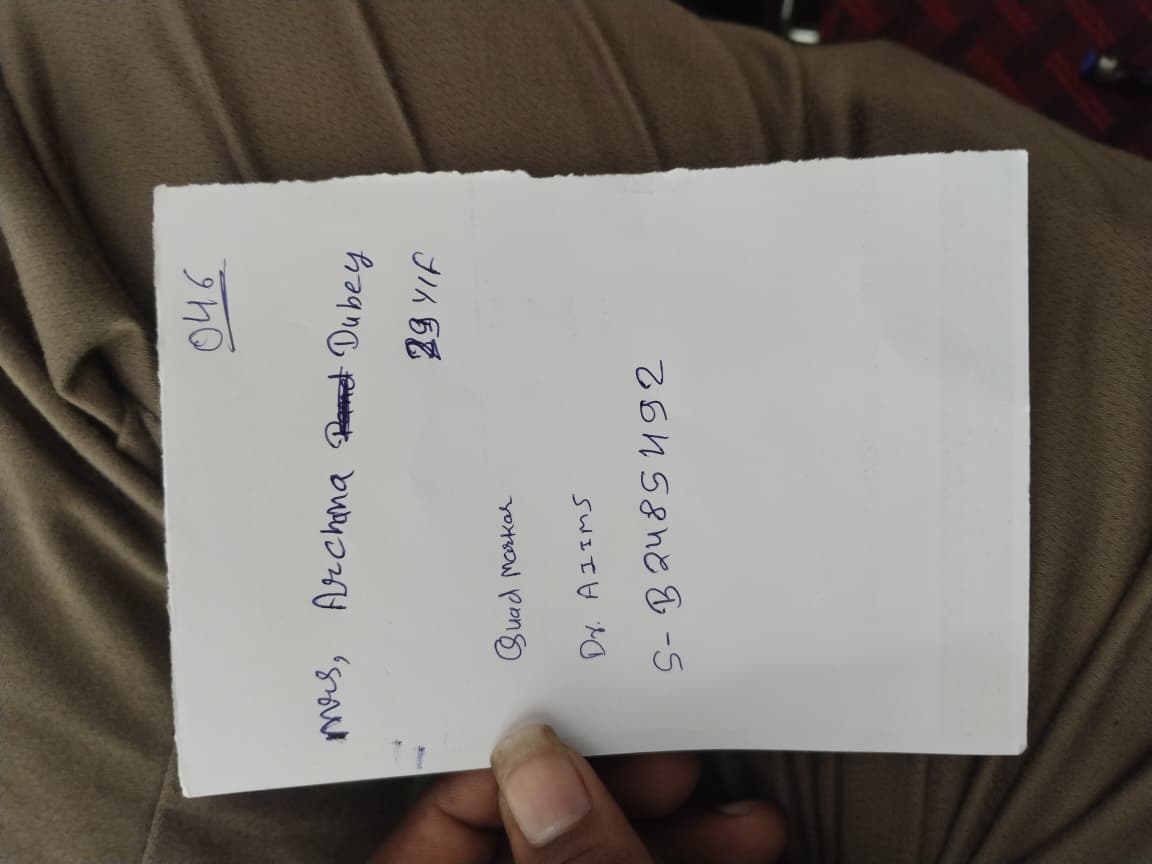 046
Mrs, Archana Dubey
29 Y/F
Quad Markar
Dr. AIIMS
S-B2485492